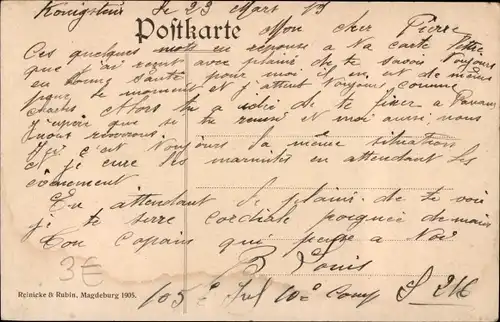 Königsbrück le 23 Mars 15
Postkarte
Mon cher Pierre
Ces quelques mots en réponse a ta carte
que j'ai reçut avec plaisir de te savoir toujours
en bonne santé pour moi il en est de même
pour le moment et j'attent toujours comme
Alors tu a
j'espoir que si tu et moi aussi nous
nous
Ici c'est toujours la même situation
et je cure les marmites en attendant les
évènement
En attendant le plaisir de te voir
je te serre cordiale poignée de main
Ton copain qui pense a toi
B Louis
3€
Reinicke & Rubin, Magdeburg 1905.
105e 10e Comp